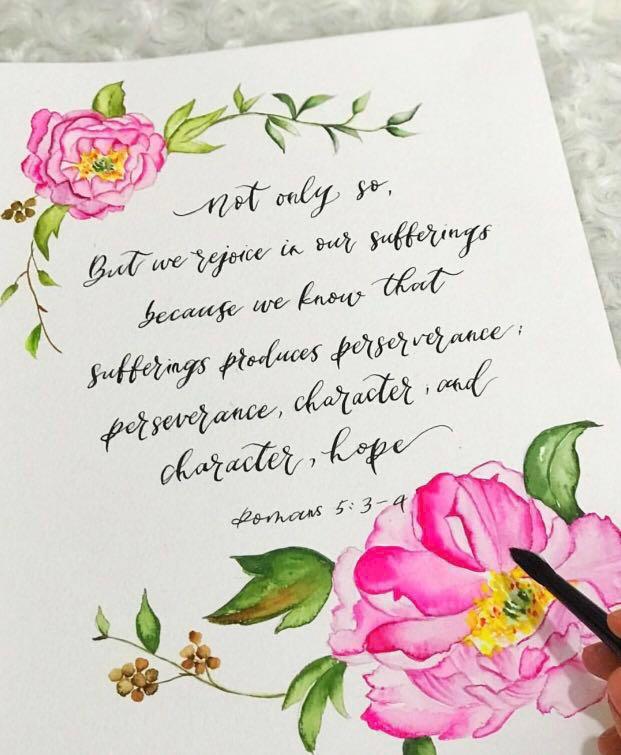 not only so,
But we rejoice in our sufferings
because we know that
sufferings produces perserverance;
perseverance, character; and
character, hope
Romans 5:3-4